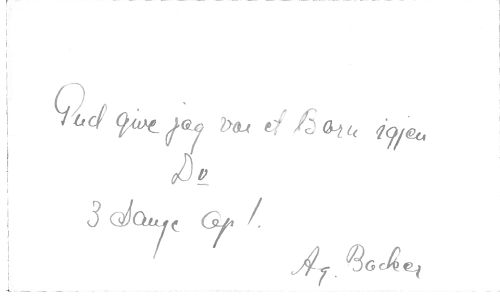 Gud give jag var et Barn igjen
Do
3 Sange Op 1.
Ag. Backer